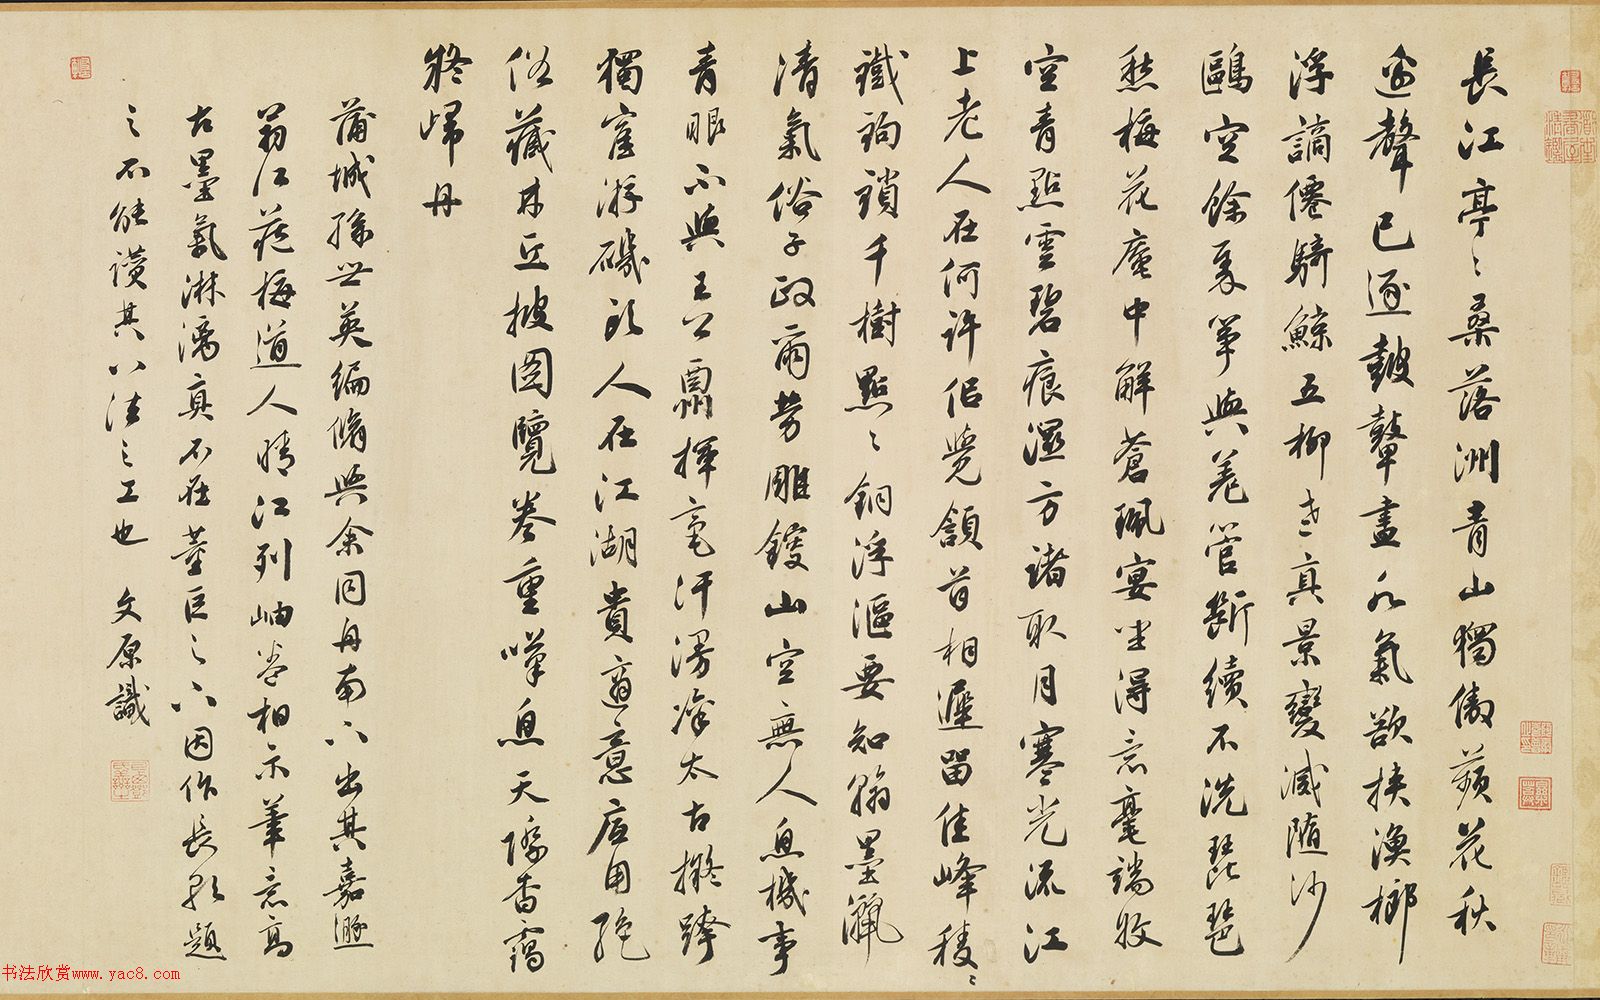 長江亭〻桑落洲青山獨傲蘋花秋
邊聲已逐鼓鼙盡水氣欲挾漁榔
浮謫僊騎鯨五柳去真景變滅隨沙
鷗空餘哀箏與羌管斷續不洗琵琶
愁梅花庵中解蒼珮宴坐得意毫端收
空青點雲碧痕濕方諸取月寒光流江
上老人在何許但覺頷首相遲留佳峰稜〻
鐵鉤鎖千樹點〻銅浮漚要知翰墨灑
清氣俗子政爾勞雕鎪山空無人息機事
青眼不與王公
揮毫汗漫凌太古擬跨
獨
游磯頭人在江湖貴適意應用絕
俗藏林丘披圖覽卷重嘆息天際杳靄
移歸舟
蒲城孫世英編脩與余同舟南下出其嘉遯
翁江
梅道人晴江列岫卷相示筆意高
古墨氣淋漓真不在董巨之下因作長歌題
之不能讚其八法之工也 文原識
书法欣赏www.yac8.com